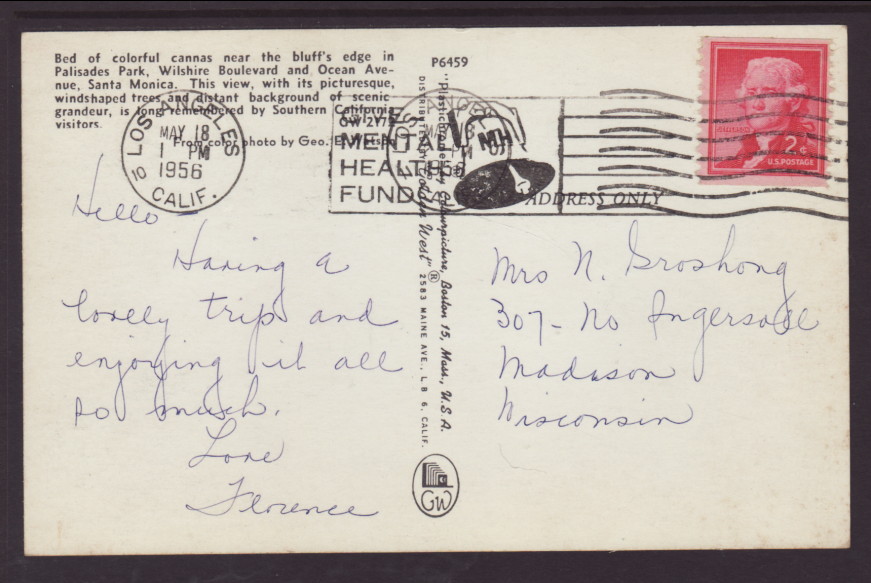 Bed of colorful cannas near the bluff's edge in
Palisades Park, Wilshire Boulevard and Ocean Ave-
nue, Santa Monica. This view, with its picturesque,
windshaped trees and distant background of scenic
grandeur, is long remembered by Southern California
visitors.
GW 2775
From color photo by Geo.
P6459
LOS ANGELES
MAY 18
1 PM
1956
10 CALIF.
MENTAL
HEALTH
FUND
MH
ADDRESS ONLY
2¢
U.S. POSTAGE
"Plastichrome" by Colourpicture, Boston 15, Mass., U.S.A.
DISTRIBUTED BY "Golden West" ® 2583 MAINE AVE., L.B 6, CALIF.
GW
Hello –
Having a
lovely trip and
enjoying it all
so much.
Love
Florence
Mrs N. Groshong
307 – No Ingersoll
Madison
Wisconsin